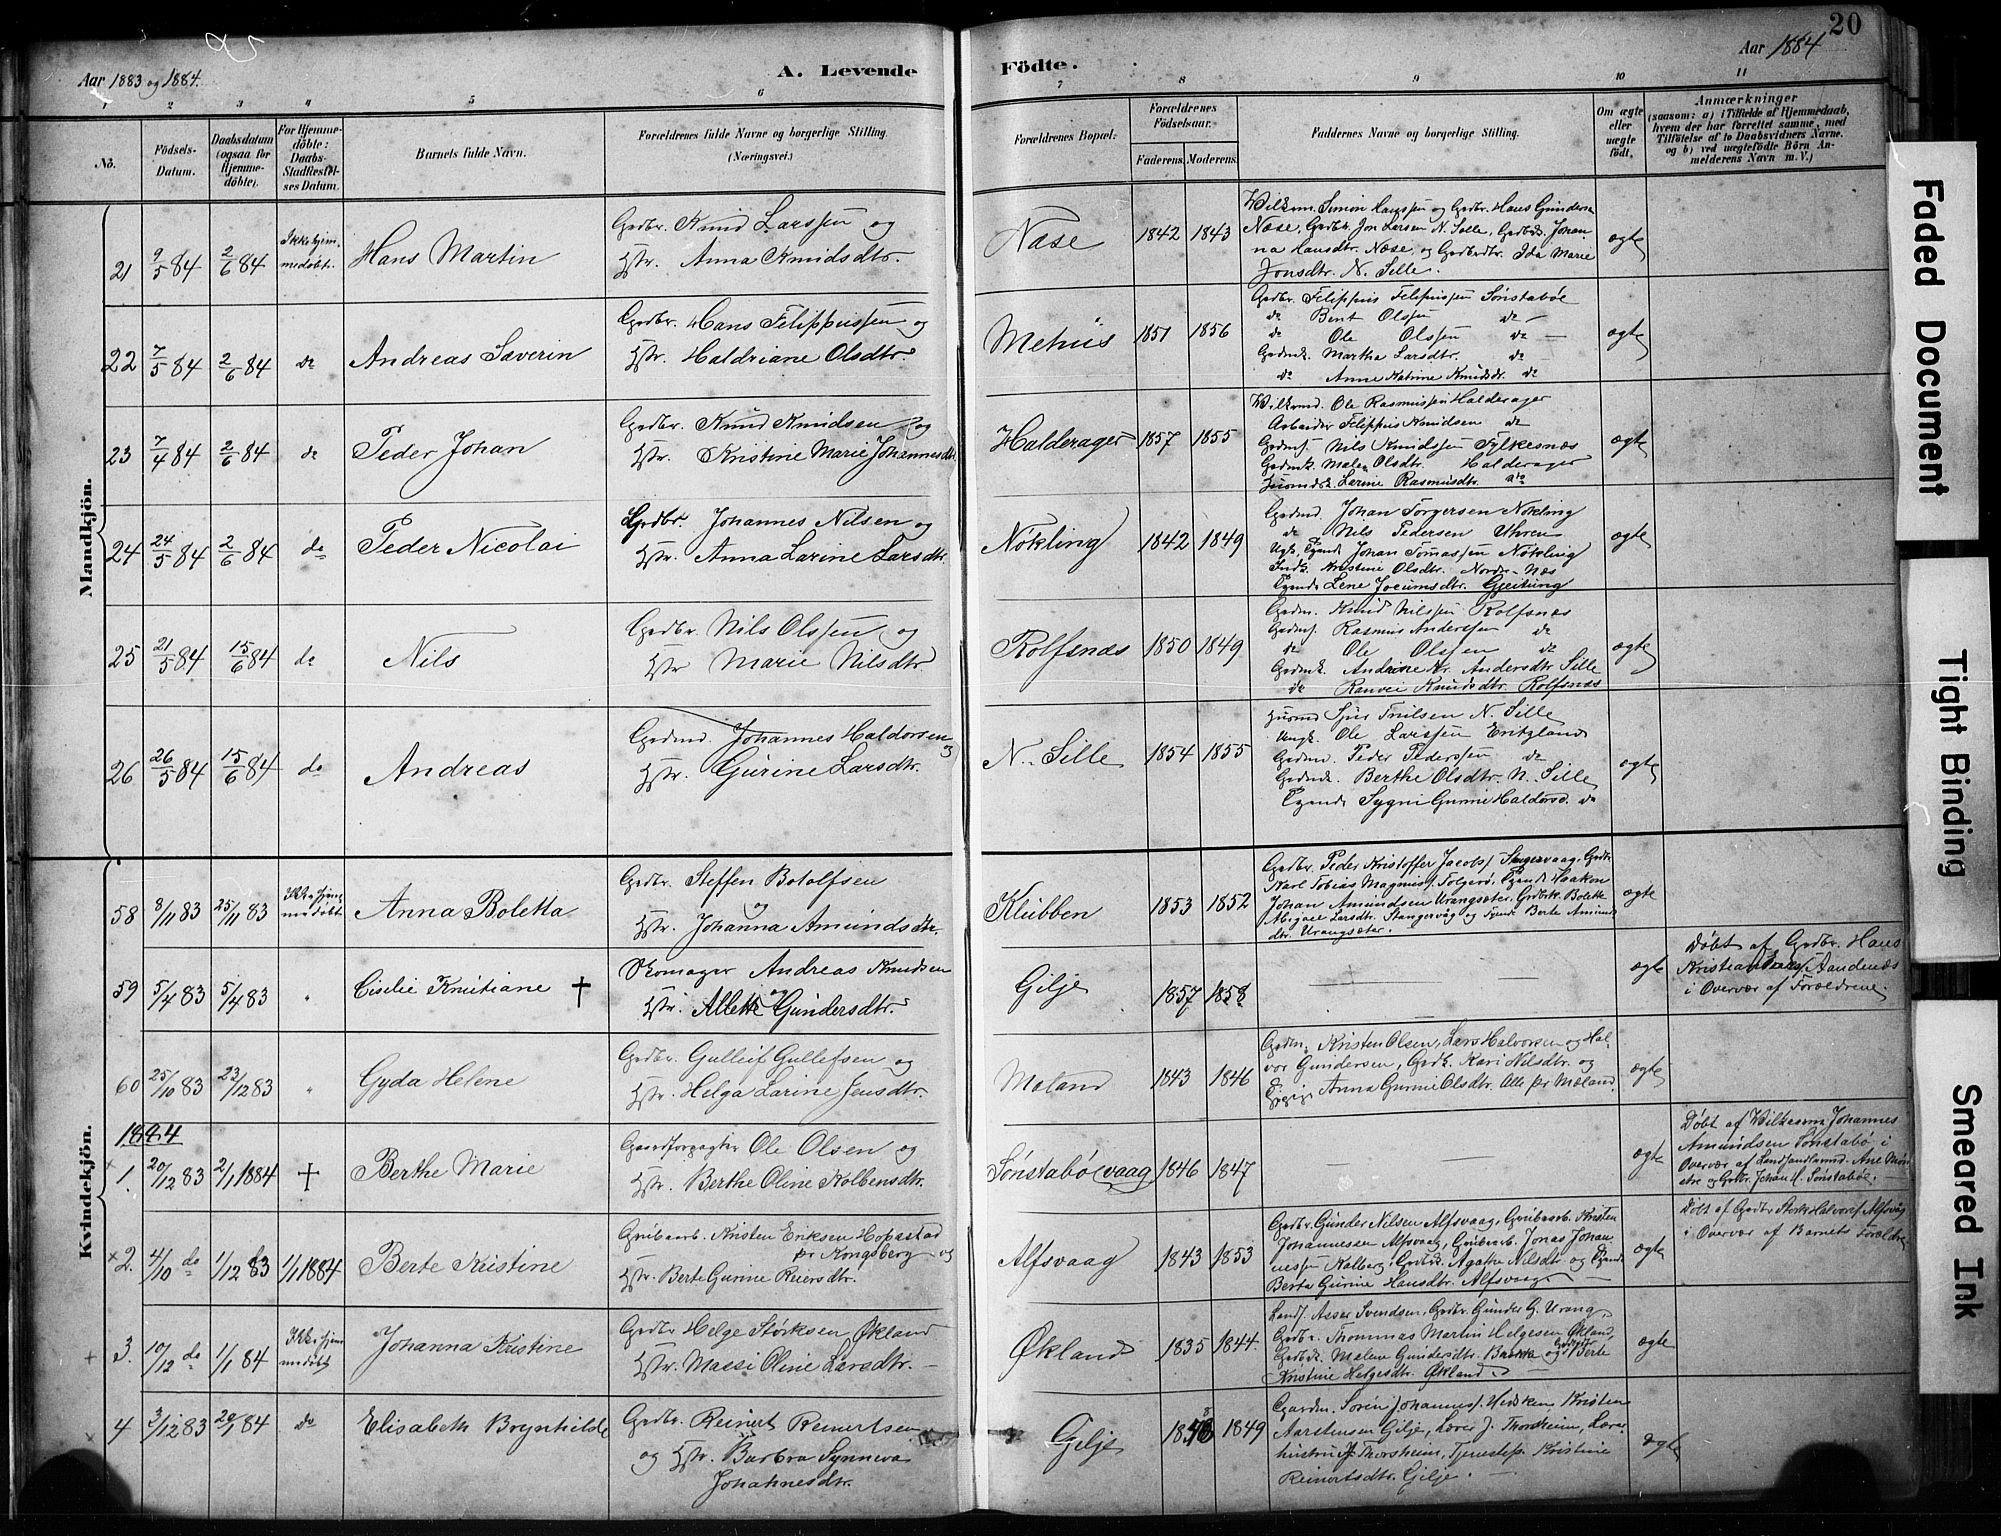 20
Aar 1883 og 1884.
A. Levende
Födte.
Aar 1884
1 2 3 4 5 6 7 8 9 10 11
No.
Födsels-Datum.
Daabsdatum (ogsaa for Hjemme-döbte).
For Hjemme-döbte: Daabs-Stadfæstel-ses Datum.
Barnets fulde Navn.
Forældrenes fulde Navne og borgerlige Stilling. (Næringsvei.)
Forældrenes Bopæl.
Forældrenes Födselsaar.
Faderens. Moderens.
Faddernes Navne og borgerlige Stilling.
Om ægte eller uægte födt.
Anmærkninger
(saasom: a) i Tilfælde af Hjemmedaab, hvem der har forrettet samme, med Tilföielse af to Daabsvidners Navne. og b) ved uægtefödte Börn An-melderens Navn m. V.)
Mandkjön.
21 9/5 84 2/6 84 Ikke hjem-medøbt. Hans Martin
Grdbr. Knud Larssen og
Hstr. Anna Knudsdtr.
Næse 1842 1843
Wilkm. Simon Hanssen og Grdbr. Hans Gunders.
Næse, Grdbr. Jon Larsen N. Sille, Grdbk. Johan-
na Hansdtr. Næse, og Grdbrdtr. Ida Marie
Jonsdtr. N. Sille.
ægte
22 7/5 84 2/6 84 do Andreas Severin
Grdbr. Hans Filippussen og
Hstr. Haldriane Olsdtr.
Mehus 1851 1856
Grdbr. Filippus Filipussen Sønstabøe
do Bent Olssen do
do Ole Olssen do
Grdmk. Martha Larsdtr. do
do Anne Katrine Knudsdr. do
ægte
23 7/4 84 2/6 84 do Peder Johan
Grdbr. Knud Knudsen og
Hstr. Kristine Marie Johannesdtr.
Halderager 1857 1855
Wilkmd. Ole Rasmussen Halderager
Arbeider Filippus Knudsen do
Grdms. Nils Knudssen Fylkesnæs
Grdmk. Malen Olsdtr. Halderager
Husmdk. Larine Rasmusdtr. do
ægte
24 24/5 84 2/6 84 do Peder Nicolai
Grdbr. Johannes Nilsen og
Hstr. Anna Larine Larsdtr.
Nökling 1842 1849
Grdmd. Johan Torgersen Nökling
do Nils Pedersen Uhren
Ugk. Tjende Johan Tomassen Nökling
Indk. Kristine Olsdtr. Nordr-Næs
Tjende Lene Jocumsdtr. Gjeitung
ægte
25 21/5 84 15/6 84 do Nils
Grdbr. Nils Olssen og
Hstr. Marie Nilsdtr.
Rolfsnæs 1850 1849
Grdm. Knud Nilssen Rolfsnæs
Grdms. Rasmus Anderssen do
do Ole Olssen do
Grdmk. Andrine Kr. Andersdtr Sille
do Ranvei Knudsdtr. Rolfsnæs
ægte
26 26/5 84 15/6 84 do Andreas
Grdmd. Johannes Haldorsen og
Hstr. Gurine Larsdtr.
N. Sille 1854 1855
Husmd Sjur Truilsen N. Sille
Ungk. Ole Larssen Eritsland
Grdm. Peder Pedersen do
Grdmk. Berthe Olsdtr. N. Sille
Tjende Sygni Gurine Haldorsd. do
ægte
Kvindekjön.
58 8/11 83 25/11 83 Ikke hjem-medöbt Anna Boletta
Grdbr. Steffen Botolfsen
og
Hstr. Johanna Amundsdtr.
Klubben 1853 1852
Grdbr. Peder Kristoffer Jacobs. Stangervaag, Grdbr.
Karl Tobias Magnus. Folgerö, Tjende Haakon
Johan Amundsen Urangsæter, Grdbrk. Bolette
Abigael Larsdtr. Stangervåg og Tjende Berte Amunds
dtr. Urangsæter.
ægte
59 5/4 83 5/4 83 " Cisilie Kristiane †
Skomager Andreas Knudsen
og
Hstr. Allette Gundersdtr.
Gilje 1857 1858
ægte
Døbt af Grdbr. Hans
Kristian Lars. Aandenæs
i Overvær af Forældrene.
60 25/10 83 23/12 83 " Gyda Helene
Grdbr. Gulleif Gullefsen og
Hstr. Helga Larine Jensdtr.
Mæland 1843 1846
Grdm. Kristen Olsen, Lars Halvorsen og Hal-
vor Gundersen, Grdk. Kari Nilsdtr. og
Pige Anna Gurine Olsdtr. Alle fra Mæland.
ægte
1884
1. 20/12 83 2/1 1884 † Berthe Marie
Gaardforpagter Ole Olsen og
Hstr. Berthe Oline Kolbensdtr.
Sønstabø(vaag) 1846 1847
ægte
Døbt af Wilkesmd Johannes
Amundsen Sønstabø i
Overvær af Landhandlermd. Ane Mon-
stre og Grdbr. Johan H. Sønstabøe.
×2. 4/10 do 1/12 83 1/1 1884 Berte Kristine
Grubearb. Kristen Eriksen Hopestad
fra Kongsberg og
Hstr. Berte Gurine Reiersdtr.
Alfsvaag 1843 1853
Grdbr. Gunder Nilsen Alfsvaag, Grubearb. Kristen
Johannessen Alfsvaag, Grubearb. Jonas Johan-
nessen Kalberg, Grdbrk. Agathe Nilsdtr og Tjende
Berta Gurine Hansdtr. Alfsvaag
ægte
Døbt af Grdbr Størk Halvors. Alfsvåg
i Overvær af Barnets Forældre
+ 3. 10/12 do 1/1 84 Ikke hjem-medøbt Johanna Kristine
Grdbr Helge Størksen Økland
Hstr. Massi Oline Larsdtr.
Økland 1835 1844.
Lend. Asser Svendsen, Grdbr. Gunder G. Urang,
Grdbr. Thommas Martin Helgesen Økland,
Grdbrk. Malene Gundersdtr. Brekke og Grdbrdtr. Berte
Kristine Helgesdtr. Økland.
ægte
4 3/12 83 20/1 84 do Elisabeth Brynhilde
Grdbr. Reinert Reinertsen
og Hstr. Barbra Synneva
Johannesdtr.
Gilje 1848 1849
Gaardm. Sørin Johannes. Vedskem. Kristen
Aarstensen Gilje, Lærer J. Thorsheim, Lærer-
hustru Thorsheim, Tjenestep. Kristine
Reinertsdtr. Gilje.
ægte
Faded Document
Tight Binding
Smeared Ink